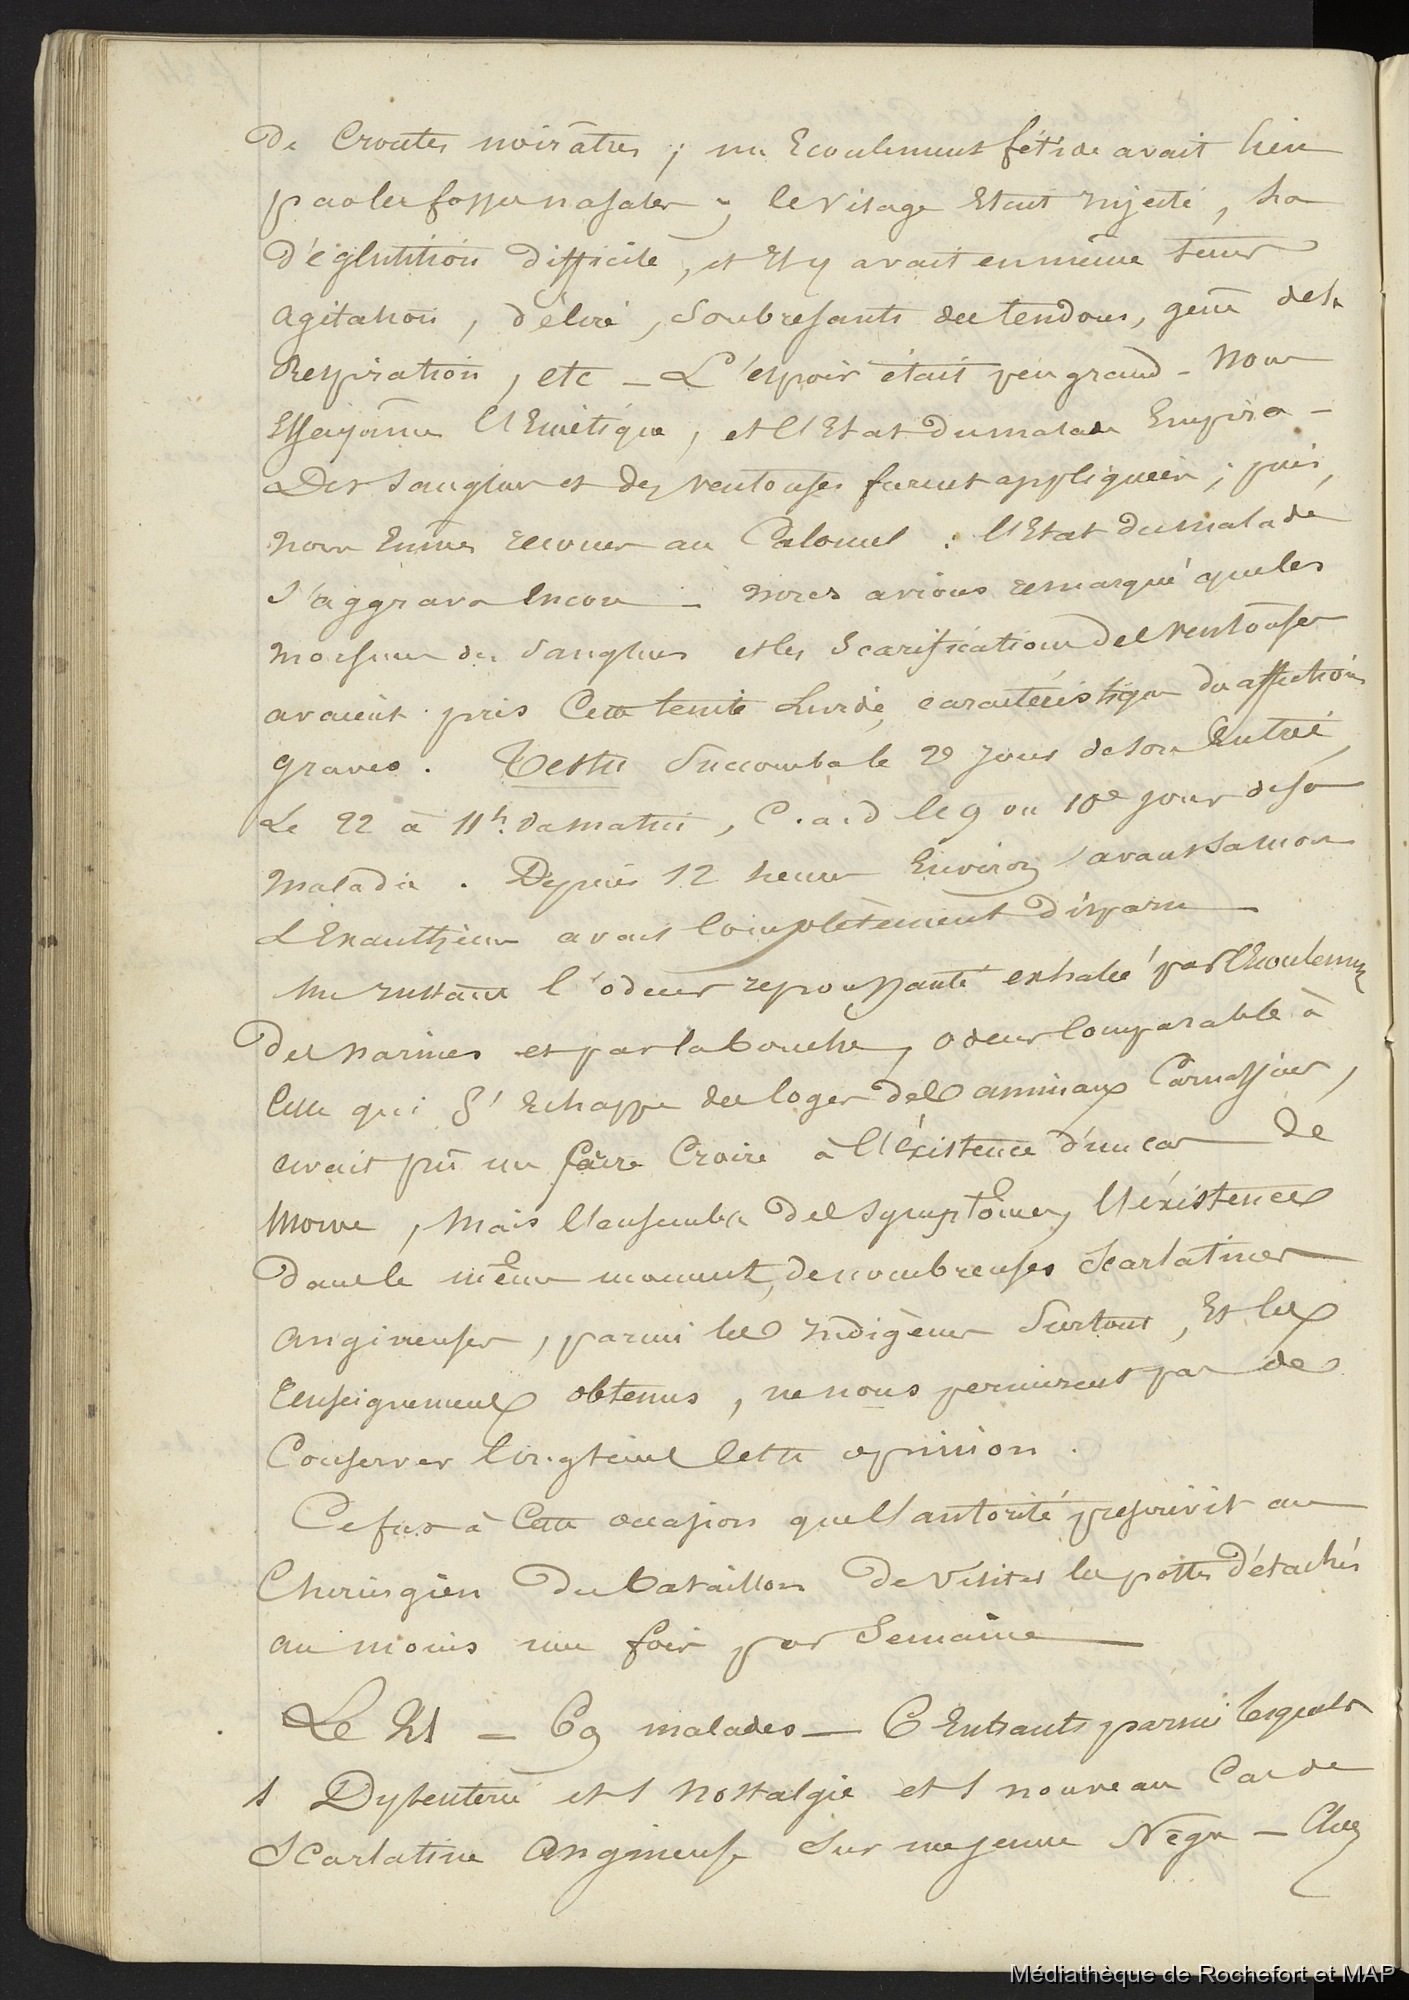 De Croutes noirâtres ; un Ecoulement fétide avait lieu
par les fosses nasales ; le visage Etait injecté, la
déglutition difficile, et Il y avait en même tems
agitation, délire, Soubresauts des tendons, gêne de la
Respiration, etc – L'espoir était peu grand – Nous
Essayâmes l'Emétique, et l'Etat du malade Empira –
Des Sangsues et des ventouses furent appliquées ; puis,
nous Eûmes recours au Calomel : l'Etat du malade
s'aggrava Encore – Nous avions remarqué que les
morsures des Sangsues et les Scarifications des ventouses
avaient pris Cette teinte Livide, caractéristique des affections
graves. Testu Succomba le 2e jour de son Entrée,
Le 22 à 11h. du matin, C.à.d le 9 ou 10e jour de sa
maladie. Depuis 12 heures Environ, avant sa mort
L'Exanthème avait Complètement disparu
Un instant l'odeur repoussante exhalée par l'Ecoulement
Des narines et par la bouche, odeur Comparable à
Celle qui S'Echappe des loges des animaux Carnassiers,
avait pû me faire Croire à l'éxistence d'un cas de
Morve, Mais l'ensemble des symptômes, l'éxistence
dans le même moment, de nombreuses Scarlatines
angineuses, parmi les Indigènes Surtout, Et les
renseignements obtenus, ne nous permirent pas de
Conserver longtems Cette opinion.
Ce fut à Cette occasion que l'autorité prescrivit au
Chirurgien Du Bataillon De visiter les postes détachés
au moins une fois par Semaine
Le 21 – 69 malades – 6 Entrants parmi lesquels
1 Dyssenterie et 1 nostalgie et 1 nouveau Cas de
Scarlatine Angineuse Sur une jeune Nègre – Chez